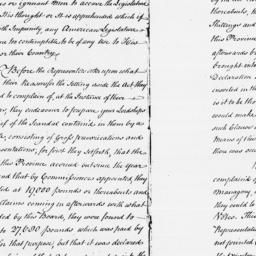 or ignorant men to accuse the Legislature
This thought or it is apprehended which if
with Impunity any American Legislature
me to contemptible to be of any use to His
or their Country.
Before the Representer enter upon what
their Reasons for the Setting aside the Act they
d to complain of, at the Instance of their
er, they endeavour to prepare your Lordships
ief of the Scandal contained in them by a
, consisting of gross prevarications and
sentations, for they first Setforth, that the
this Province accrued antienter the year
and that by Commissioners appointed, they
ted at 10,000 pounds or thereabouts and
claims coming in afterwards with what
ded by this Board, they were found to
to 27,680 pounds which was paid by
for that purpose, but that it was declared
thereabouts, to
Shillings and
this Province
afterwards b
brought into
Declaration
inserted in th
is it to be tho
would make
such Clauses
means of the
thou was occ
complaint
Managery
they could to
Notes. This
Representati
not pointed